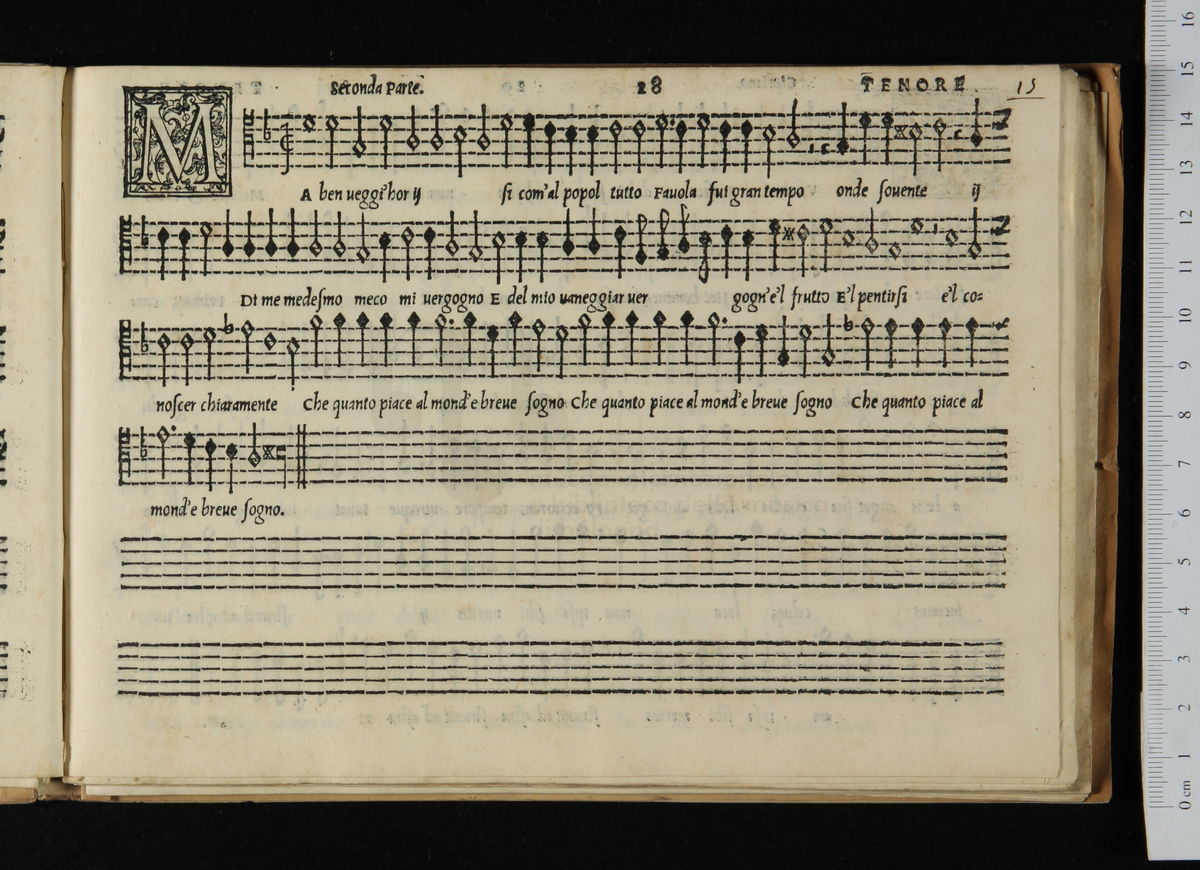 Seconda Parte. 28 TENORE 15
MA ben ueggi'hor ij si com'al popol tutto Fauola fui gran tempo onde souente ij
Di me medesmo meco mi uergogno E del mio uaneggiar uer gogn'e'l frutto E'l pentirsi e'l co=
noscer chiaramente Che quanto piace al mond'e breue sogno Che quanto piace al mond'e breue sogno Che quanto piace al
mond'e breue sogno.
16
15
14
13
12
11
10
9
8
7
6
5
4
3
2
1
0 cm